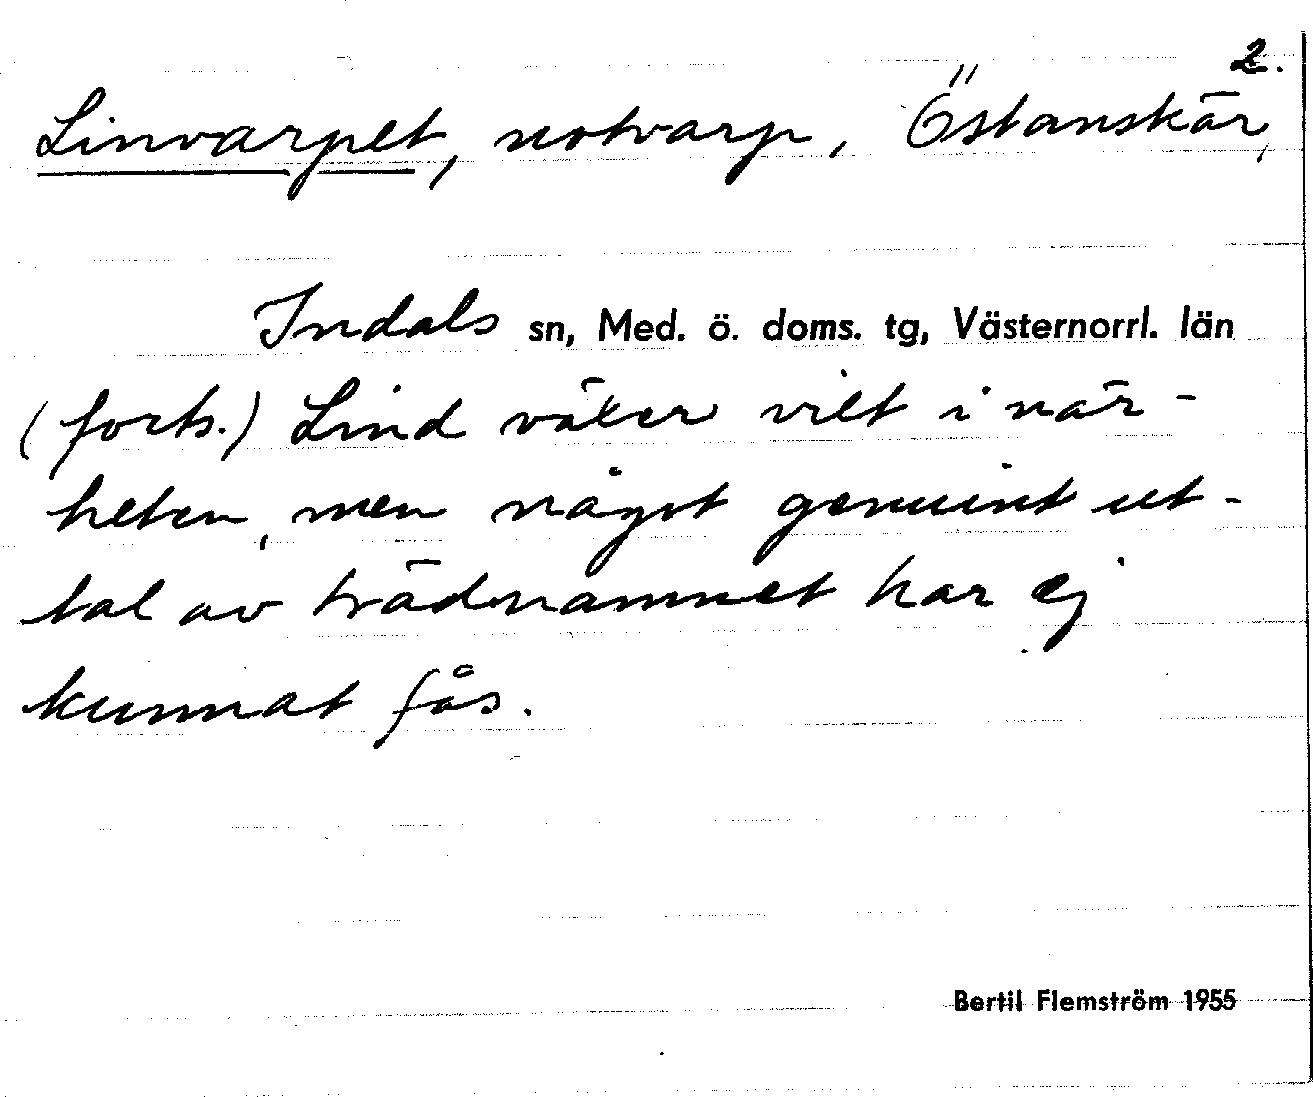 2.
Linvarpet, notvarp, Östanskär,
Indals sn, Med. ö. doms. tg, Västernorrl. län
(forts.) Lind växer vilt i när-
heten, men något genuint ut-
tal av trädnamnet har ej
kunnat fås.
Bertil Flemström 1955